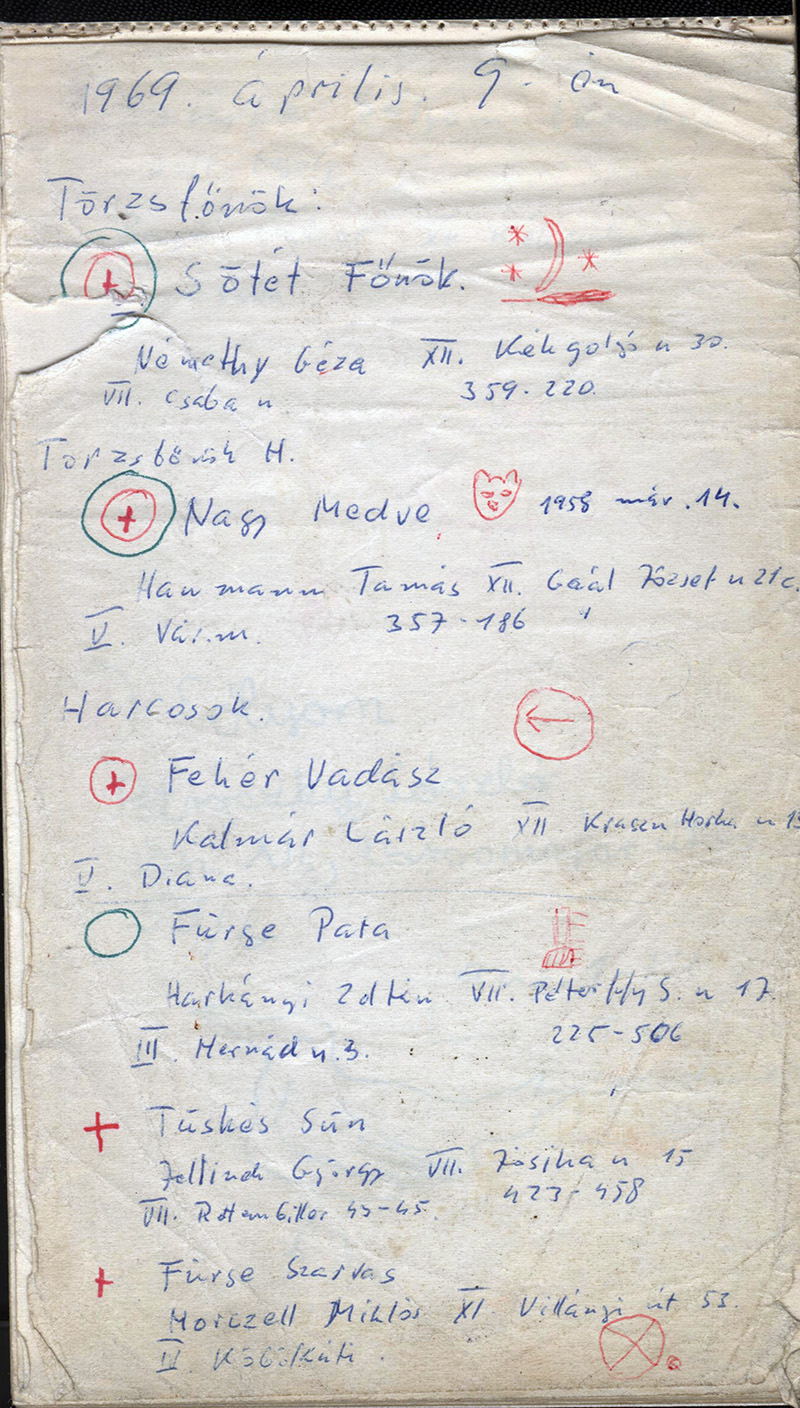 1969. április. 9. én
Törzsfőnök:
Sötét Főnök.
Némethy Géza XII. Kékgolyó u 30.
VII. Csaba u 359-220.
Törzsfőnök H.
Nagy Medve 1958 már. 14.
Haumann Tamás XII. Gaál József u 21c.
V. Vár.m. 357-186
Harcosok.
Fehér Vadász
Kalmár László XII Krasznahorka u
V. Diana.
Fürge Pata
Harkányi Zoltán VII. Péterffy S. u 17.
III. Hernád u. 3. 225-506
Tüskés Sün
György VII. Jósika u 15
VII. Rottenbiller 43-45. 423-458
Fürge Szarvas
Morczell Miklós XI Villányi út 53.